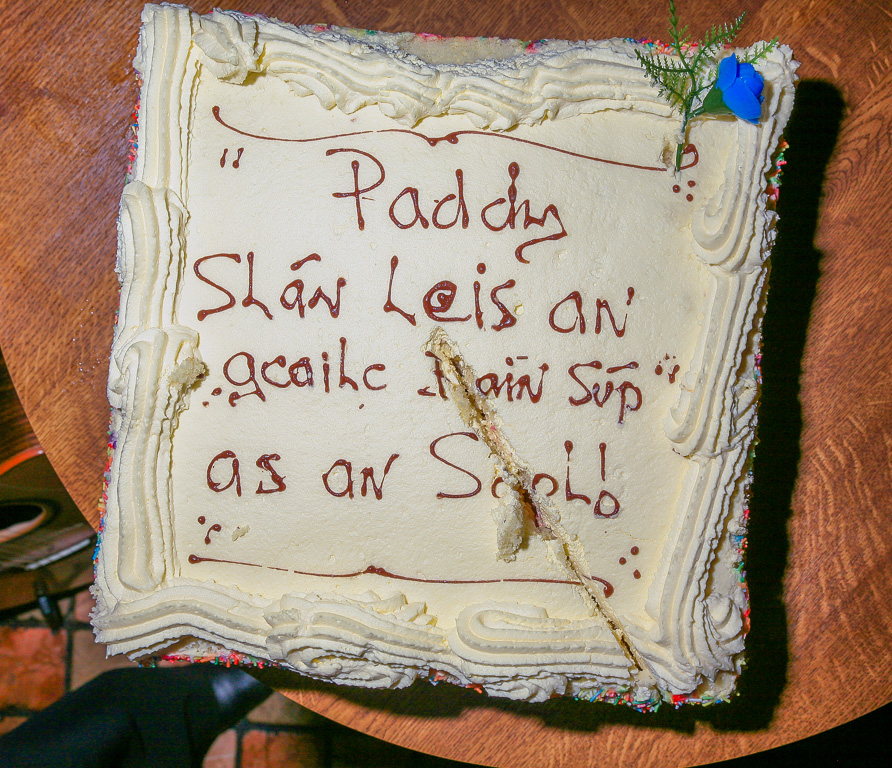 "Paddy
Slán Leis an
gcailc Bain Súp"
as an Saol!